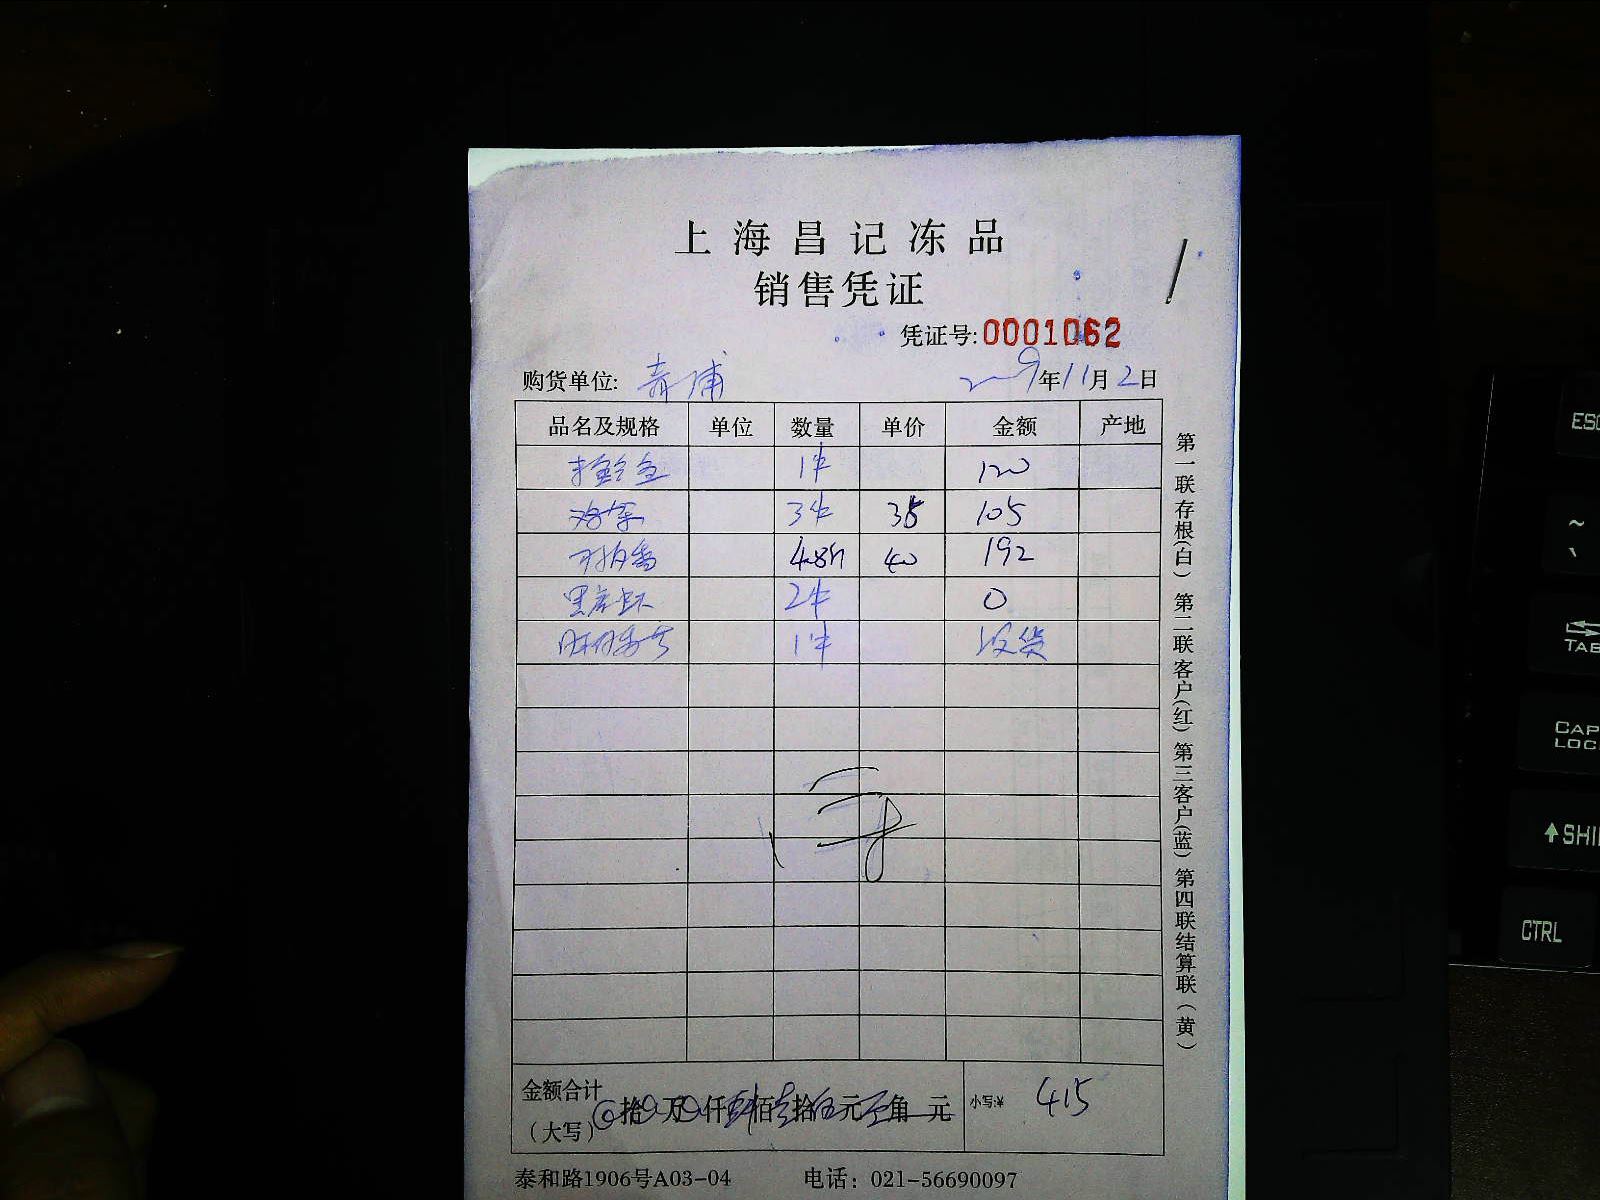 上海昌记冻品
销售凭证
凭证号:0001062
购货单位: 青浦 年11月2日
品名及规格 单位 数量 单价 金额 产地
1件 120
3件 35 105
4.8斤 40 192
2件 0
1件 没货
金额合计
(大写) 拾 万 仟 肆佰壹拾伍元 角 元 小写:¥ 415
泰和路1906号A03-04 电话: 021-56690097
第一联存根(白) 第二联客户(红) 第三客户(蓝) 第四联结算联(黄)
ESC
~
TAB
CAP
LOC
SHI
CTRL